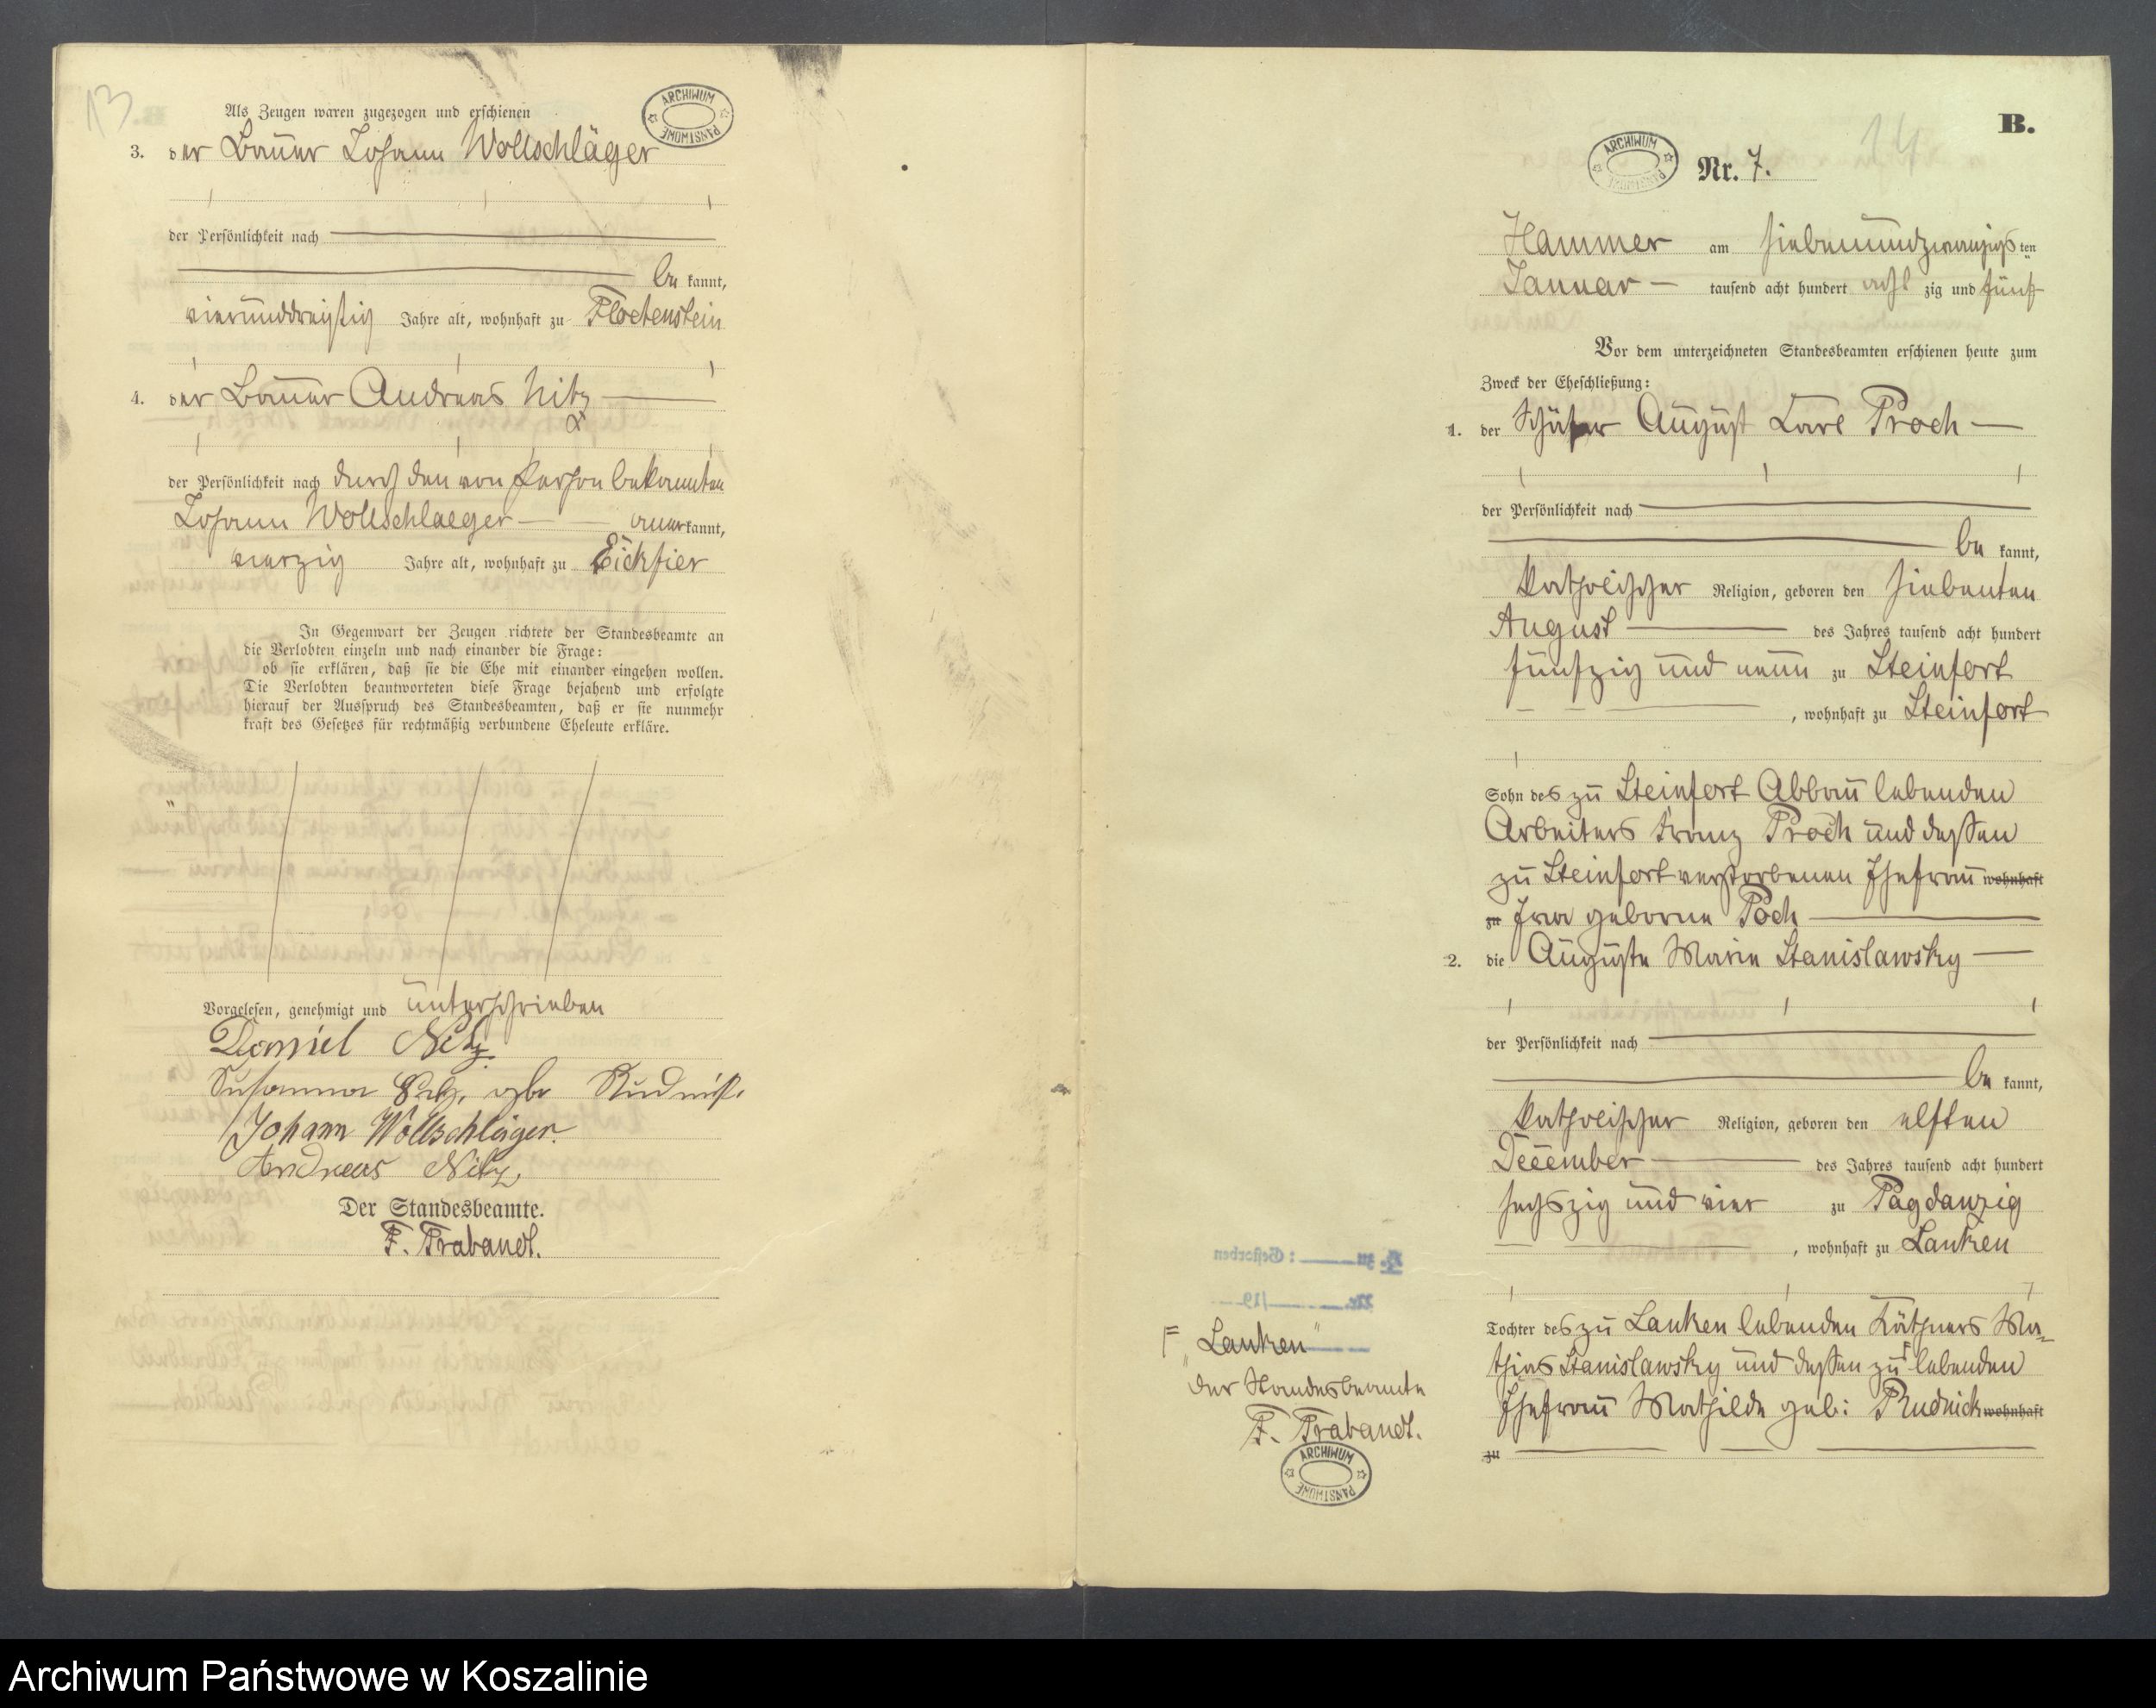 13
Als Zeugen waren zugezogen und erschienen
ARCHIWUM PAŃSTWOWE
3. der Bauer Johann Wollschläger
der Persönlichkeit nach
be kannt,
vierunddreißig Jahre alt, wohnhaft zu Floetenstein
4. der Bauer Andreas Nitz
der Persönlichkeit nach durch den von Person bekannten
Johann Wollschlaeger anerkannt,
vierzig Jahre alt, wohnhaft zu Eickfier
In Gegenwart der Zeugen richtete der Standesbeamte an
die Verlobten einzeln und nach einander die Frage:
ob sie erklären, daß sie die Ehe mit einander eingehen wollen.
Die Verlobten beantworteten diese Frage bejahend und erfolgte
hierauf der Ausspruch des Standesbeamten, daß er sie nunmehr
kraft des Gesetzes für rechtmäßig verbundene Eheleute erkläre.
Vorgelesen, genehmigt und unterschrieben
Daniel Nitz
Susanna gbr Rudnik.
Johann Wollschläger.
Andreas Nitz,
Der Standesbeamte.
F. Trabandt.
B.
14
ARCHIWUM PAŃSTWOWE
Nr. 7.
Hammer am siebenundzwanzigsten
Januar tausend acht hundert acht zig und fünf
Vor dem unterzeichneten Standesbeamten erschienen heute zum
Zweck der Eheschließung:
1. der Schäfer August Carl Proch
der Persönlichkeit nach
be kannt,
katholischer Religion, geboren den siebenten
August des Jahres tausend acht hundert
fünfzig und neun zu Steinfort
, wohnhaft zu Steinfort
Sohn des zu Steinfort Abbau lebenden
Arbeiters Franz Proch und dessen
zu Steinfort verstorbenen Ehefrau wohnhaft
zu Eva geborne Poch
2. die Auguste Marie Stanislawsky
der Persönlichkeit nach
be kannt,
katholischer Religion, geboren den elften
December des Jahres tausend acht hundert
sechszig und vier zu Pagdanzig
, wohnhaft zu Lanken
Tochter des zu Lanken lebenden Käthners Ma=
thias Stanislawsky und dessen zu F lebenden
Ehefrau Mathilde geb: Rudnick wohnhaft
zu
zu : Gestorben
Nr. /19
F "Lanken"
Der Standesbeamte
F. Trabandt.
ARCHIWUM PAŃSTWOWE
Archiwum Państwowe w Koszalinie